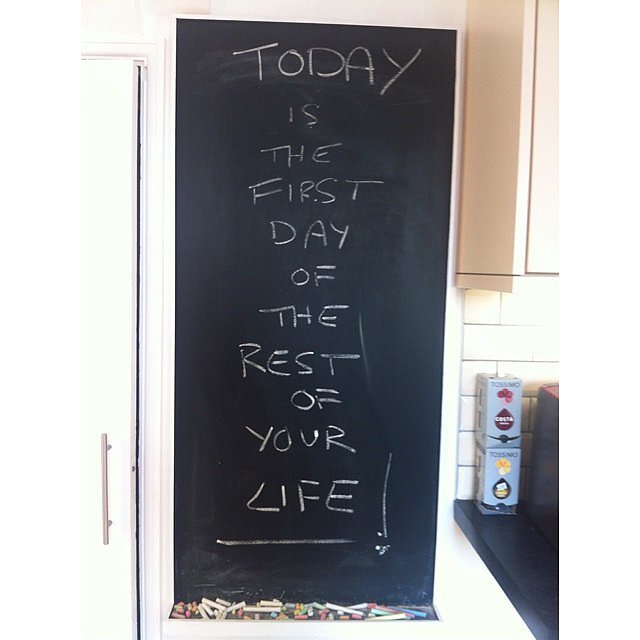 TODAY
IS
THE
FIRST
DAY
OF
THE
REST
OF
YOUR
LIFE!
TOSSIMO
COSTA
TOSSIMO